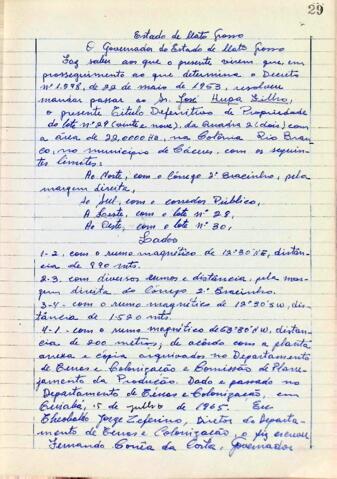 29
Estado de Mato Grosso
O Governador do Estado de Mato Grosso
Faz saber aos que o presente virem, que em
prosseguimento ao que determina o Decreto
nº 1.598, de 22 de maio de 1953, resolveu
mandar passar ao Sr. José Filho,
o presente Título Definitivo de Propriedade
do lote nº 29 (vinte e nove), da Quadra 2 (dois) com
a área de 22,0000 Ha, na Colônia Rio Bran-
co, no município de Cáceres, com os seguin-
tes limites:
Ao Norte, com o Córrego 2º Bracinho, pela
margem direita,
Ao Sul, com o corredor Público,
A Leste, com o lote nº 28,
Ao Oeste, com o lote nº 30,
Lados
1-2. com o rumo magnético de 12º30'NE, distân-
cia de 990 mts.
2-3. com diversos rumos e distância, pela mar-
gem direita do Córrego 2º Bracinho.
3-4. com o rumo magnético de 12º30'SW, dis-
tância de 1.520 mts.
4-1. com o rumo magnético de NW, distan-
cia de 200 metros; de acôrdo com a planta
anexa e cópia arquivados no Departamento
de Terras e Colonização e Comissão de Plane-
jamento da Produção. Dado e passado no
Departamento de Terras e Colonização, em
Cuiabá, 15 de julho de 1965. Eu
Theobaldo Jorge Zeferino, Diretor do Departa-
mento de Terras e Colonização, o fiz escrever
Fernando Corrêa da Costa, Governador